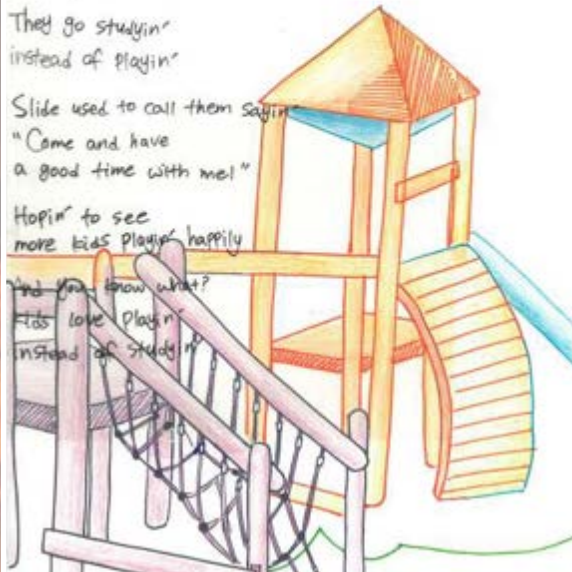 They go studyin'
instead of playin'
Slide used to call them sayin'
"Come and have
a good time with me!"
Hopin' to see
more kids playin' happily
And you know what?
kids love playin'
instead of studyin'